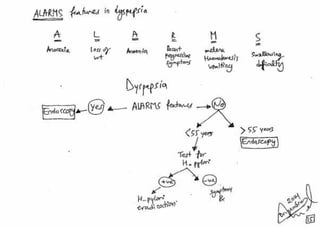 ALARMS features in dyspepsia
A L A R M S
Anorexia
Loss of
wt
Anemia
Recent
progressive
symptoms
melena
Haematemesis
vomiting
Swallowing
difficulty
Dyspepsia
Endoscopy
Yes
ALARMS features
No
<55 years
>55 years
Endoscopy
Test for
H_pylori
+ve
-ve
H_pylori
eradication
symptoms
Rx